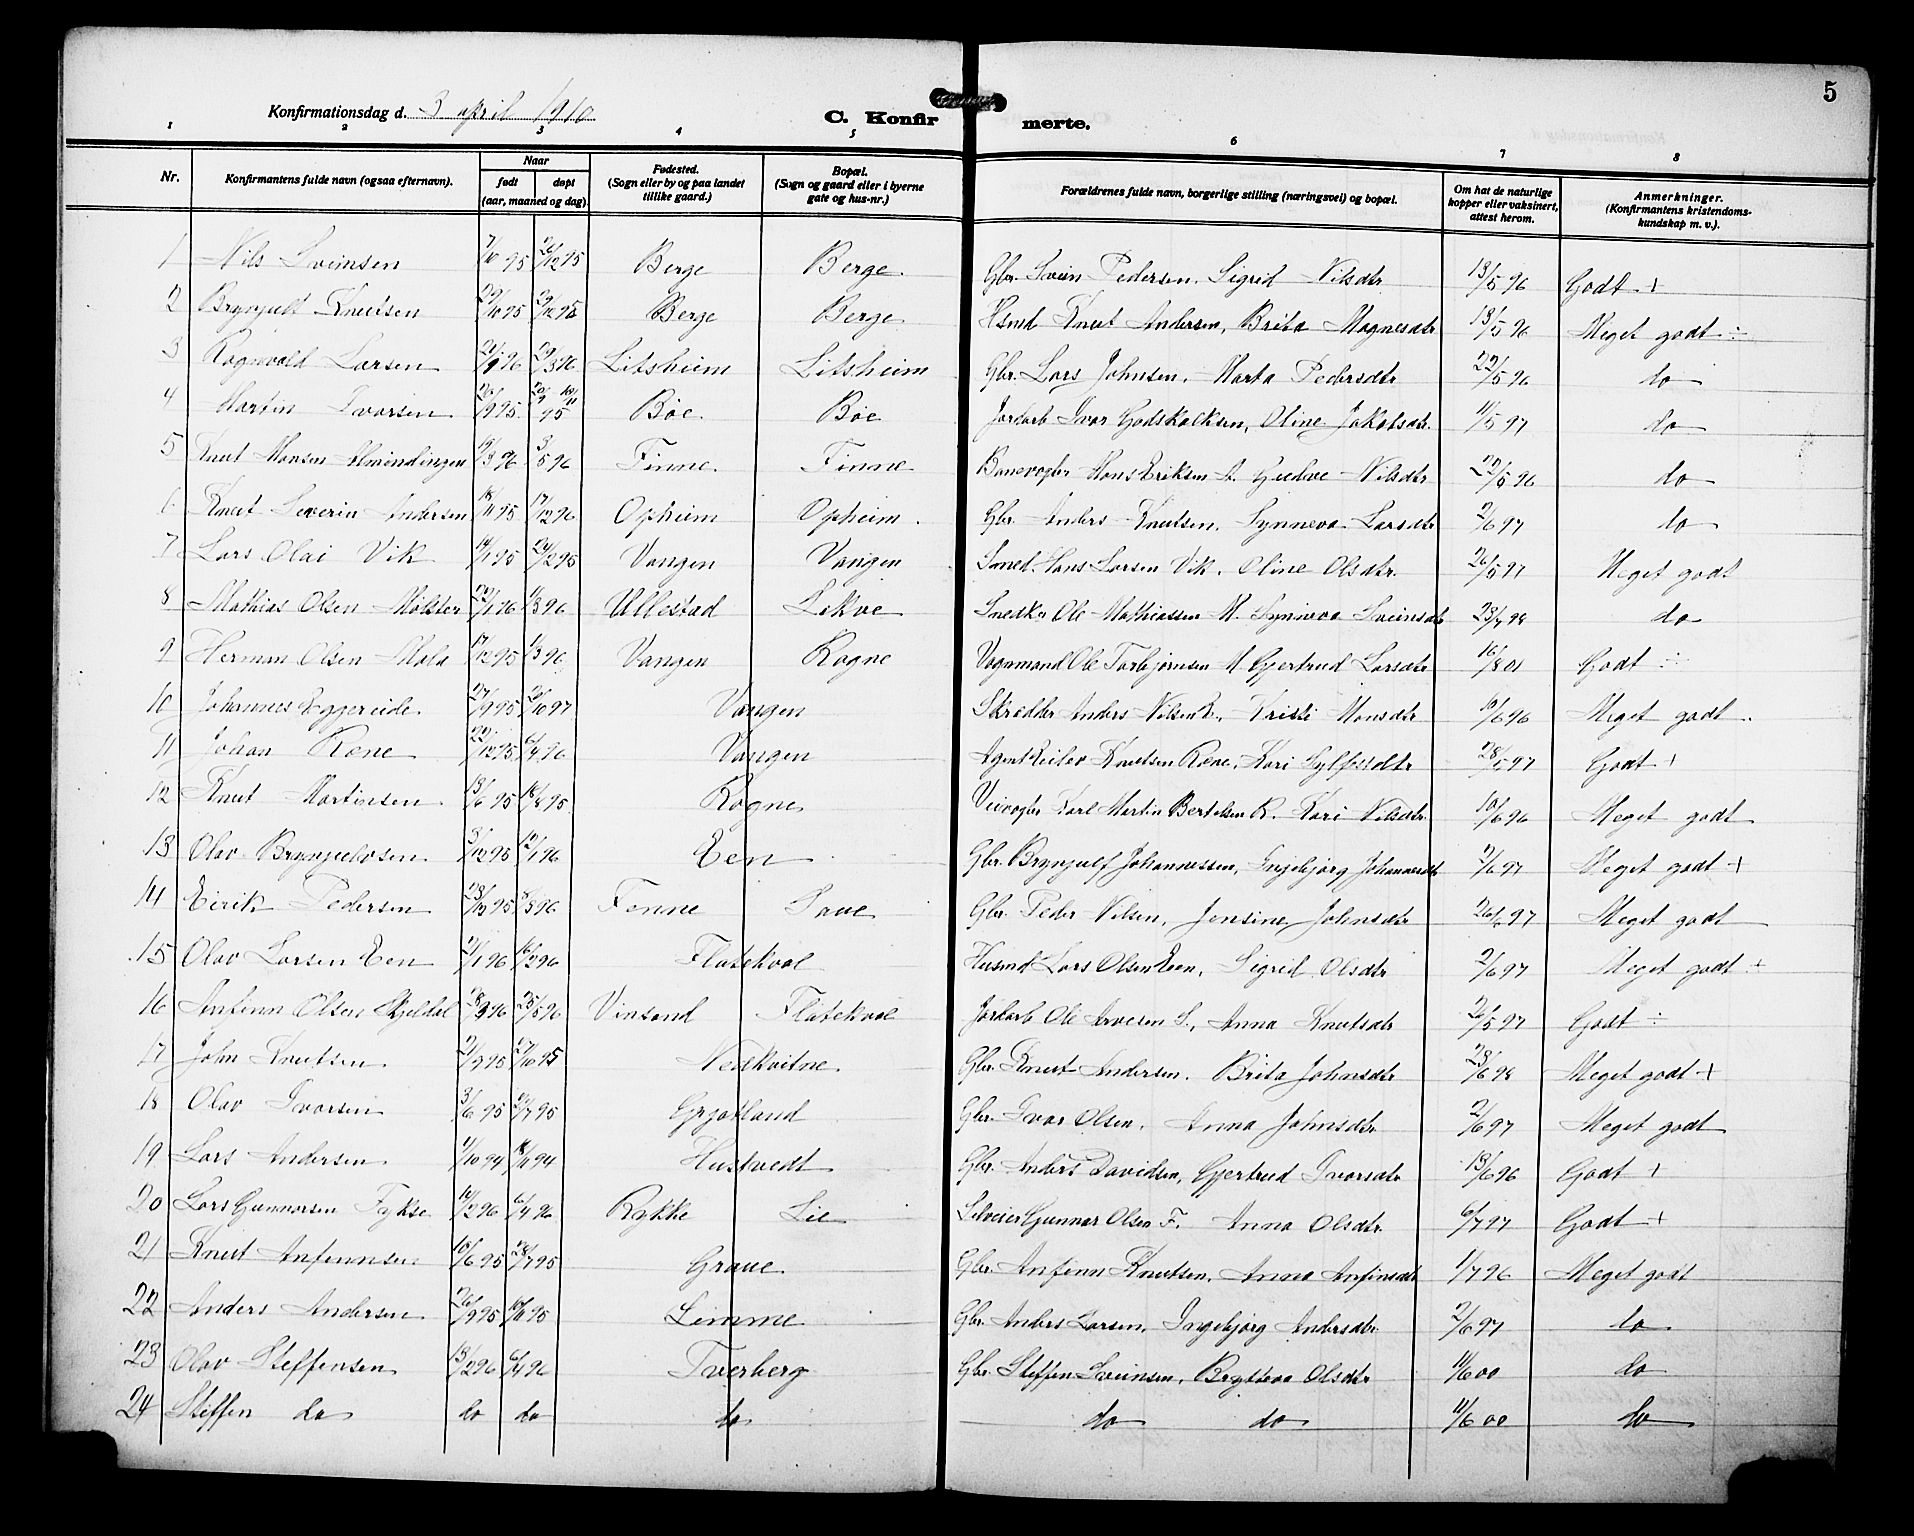 5
Konfirmationsdag d. 3 april 1910
C. Konfirmerte.
1 2 3 4 5 6 7 8
Nr. Konfirmantens fulde navn (ogsaa efternavn). Naar født døpt (aar, maaned og dag) Fødested. (Sogn eller by og paa landet tillike gaard.) Bopæl. (Sogn og gaard eller i byerne gate og hus-nr.) Forældrenes fulde navn, borgerlige stilling (næringsvei) og bopæl. Om hat de naturlige kopper eller vaksinert, attest herom. Anmerkninger. (Konfirmantens kristendomskundskap m. v.).
1 Nils Sveinsen 7/10 95 26/12 95 Berge Berge Gbr. Svein Pedersen. Sigrid Nilsdtr 13/5 96 Godt +
2 Brynjulf Knutsen 29/10 95 29/12 95 Berge Berge Hsmd Knut Andersen, Brita Magnesdtr 13/5 96 Meget godt ÷
3 Ragnvald Larsen 21/1 96 29/3 96 Litsheim Litsheim Gbr. Lars Johnsen. Marta Pedersdtr 22/5 96 do
4 Martin Ivarsen 20/9 95 Bøe Bøe Jordarb Ivar Godskalksen, Oline Jakobsdtr. 11/5 97 do
5 Knut Monsen Almindingen 19/3 96 3/5 96 Finne Finne Banevogter Mons Eriksen A. Gudve Nilsdtr 22/5 96 do
6 Knut Severin Andersen 18/11 95 17/12 96 Opheim Opheim. Gbr. Anders Knutsen, Synneva Larsdtr 2/6 97 do
7 Lars Olai Vik 14/1 95 24/2 95 Vangen Vangen Smed. Hans Larsen Vik. Oline Olsdtr. 26/5 97 Meget godt
8 Mathias Olsen Mølster 20/1 96 1/3 96 Ullestad Lekve Snedker Ole Mathiassen M. Synneva Sveinsdtr 23/7 98 do
9 Herman Olsen Mala 17/12 95 1/3 96 Vangen Rogne Vognmand Ole Torbjørnsen M Gjertrud Larsdtr 16/8 01 Godt ÷
10 Johannes Eggereide. 27/9 95 26/10 97 Vangen Skrædder Anders Nilsen E. Kristi Monsdtr 10/6 96 Meget godt.
11 Johan Rene 22/12 95 6/4 96 Vangen Agent Reilev Knutsen Rene, Kari Sylfestdtr 28/5 97 Godt +
12 Knut Martinsen 13/6 95 18/8 95 Rogne Veivogter Karl Martin Bertelsen R. Kari Nilsdtr. 10/6 96 Meget godt
13 Olav Brynjulvsen 3/12 95 12/1 96 Een Gbr. Brynjulf Johannessen, Ingebjørg Johannesdtr 2/6 97 Meget godt +
14 Eirik Pedersen 28/12 95 8/3 96 Fenne Saue Gbr. Peder Nilsen, Jensine Johnsdtr 26/6 97 Meget godt
15 Olav Larsen Een 21/1 96 16/2 96 Flatekval Husmd Lars Olsen Een, Sigrid Olsdtr 2/6 97 Meget godt +
16 Anfinn Olsen Skjeldal 28/3 96 25/5 96 Vinsand Flatekval Jordarb Ole Arvesen S., Anna Knutsdtr 26/5 97 Godt ÷
17 John Knutsen 21/9 95 27/10 95 Nedkvitne Gbr. Knut Andersen. Brita Johnsdtr 28/6 98 Meget godt +
18 Olav Ivarsen 3/6 95 14/7 95 Grjotland Gbr. Ivar Olsen. Anna Johnsdtr 2/6 97 Meget godt
19 Lars Andersen 1/10 94 18/11 94 Hustvedt Gbr. Anders Davidsen, Gjertrud Ivarsdtr 13/6 96 Godt +
20 Lars Gunnarsen Fykse 14/2 96 6/4 96 Rykke Lie Leiveier Gunnar Olsen F. Anna Olsdtr. 6/7 97 Godt +
21 Knut Anfinnsen 10/6 95 28/7 95 Graue Gbr. Anfinn Knutsen, Anna Anfinsdtr 1/7 96 Meget godt
22 Anders Andersen 26/9 95 10/11 95 Lemme Gbr. Anders Larsen, Ingebjørg Andersdtr 2/6 97 do
23 Olav Steffensen 13/2 96 6/4 96 Tverberg Gbr. Steffen Sveinsen, Bryteva Olsdtr 11/6 00 do
24 Steffen do do do do do do 11/6 00 do